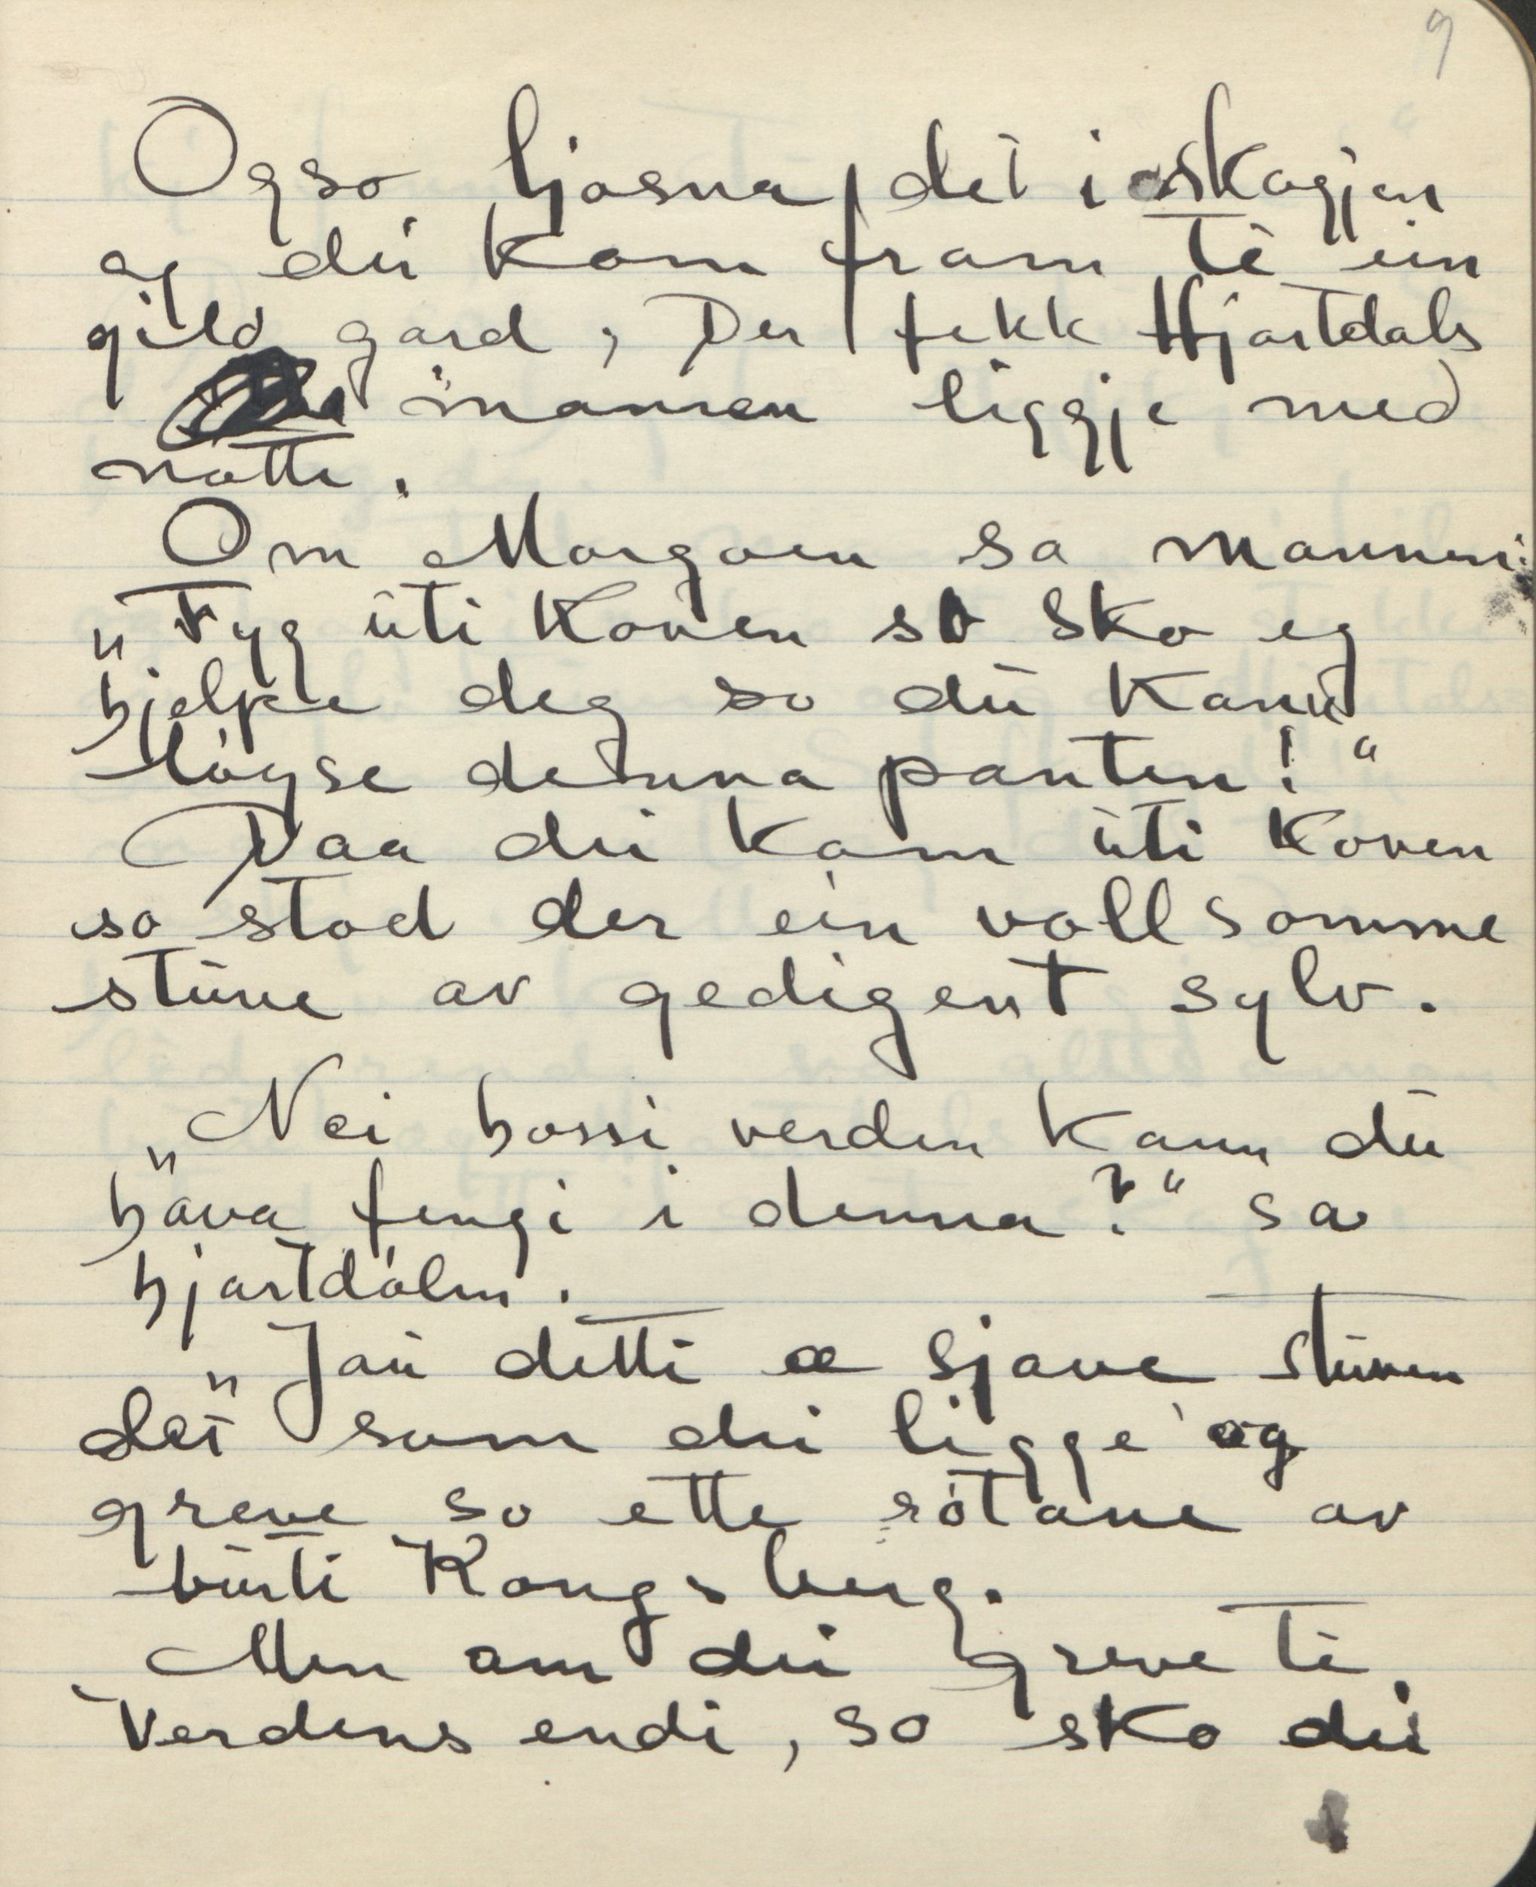 9
Ogso ljosna det i skogjen
og dei kom fram te ein
gild gard, Der fekk Hjartdals
mannen liggje med
notte.
Om Morgoen sa mannen:
„Fyg uti Koven so sko eg
hjelpe deg so du kann
løyse denna panten!“
Daa dei kom uti Koven
so stod der ein vollsomme
stuve av gedigent sylv.
„Nei hossi verden kann du
hava fengi i denna?“ sa
hjartdølen.
„Jau detti æ sjave stuven
det som dei ligge og
greve so ette røtane av
burti Kongsberg.
Men om dei greve te
Verdens endi, so sko dei